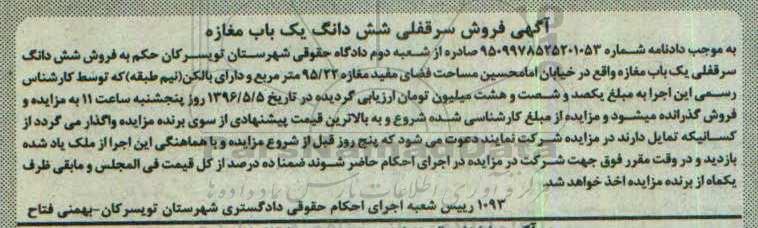 آگهی فروش سرقفلی شش دانگ یک باب مغازه
به موجب دادنامه شماره ۹۵۰۹۹۷۸۵۲۵۲۰۱۰۵۳ صادره از شعبه دوم دادگاه حقوقی شهرستان تویسرکان حکم به فروش شش دانگ
سرقفلی یک باب مغازه واقع در خیابان امامحسین مساحت فضای مفید مغازه ۹۵/۲۲ متر مربع و دارای بالکن(نیم طبقه)که توسط کارشناس
رسمی این اجرا به مبلغ یکصد و شصت و هشت میلیون تومان ارزیابی گردیده در تاریخ ۱۳۹۶/۵/۵ روز پنجشنبه ساعت ۱۱ به مزایده و
فروش گذرانده میشود و مزایده از مبلغ کارشناسی شده شروع و به بالاترین قیمت پیشنهادی از سوی برنده مزایده واگذار می گردد از
کسانیکه تمایل دارند در مزایده شرکت نمایند دعوت می شود که پنج روز قبل از شروع مزایده و با هماهنگی این اجرا از ملک یاد شده
بازدید و در وقت مقرر فوق جهت شرکت در مزایده در اجرای احکام حاضر شوند ضمنا ده درصد از کل قیمت فی المجلس و مابقی ظرف
یکماه از برنده مزایده اخذ خواهد شد.
۱۰۹۳ رییس شعبه اجرای احکام حقوقی دادگستری شهرستان تویسرکان-بهمنی فتاح